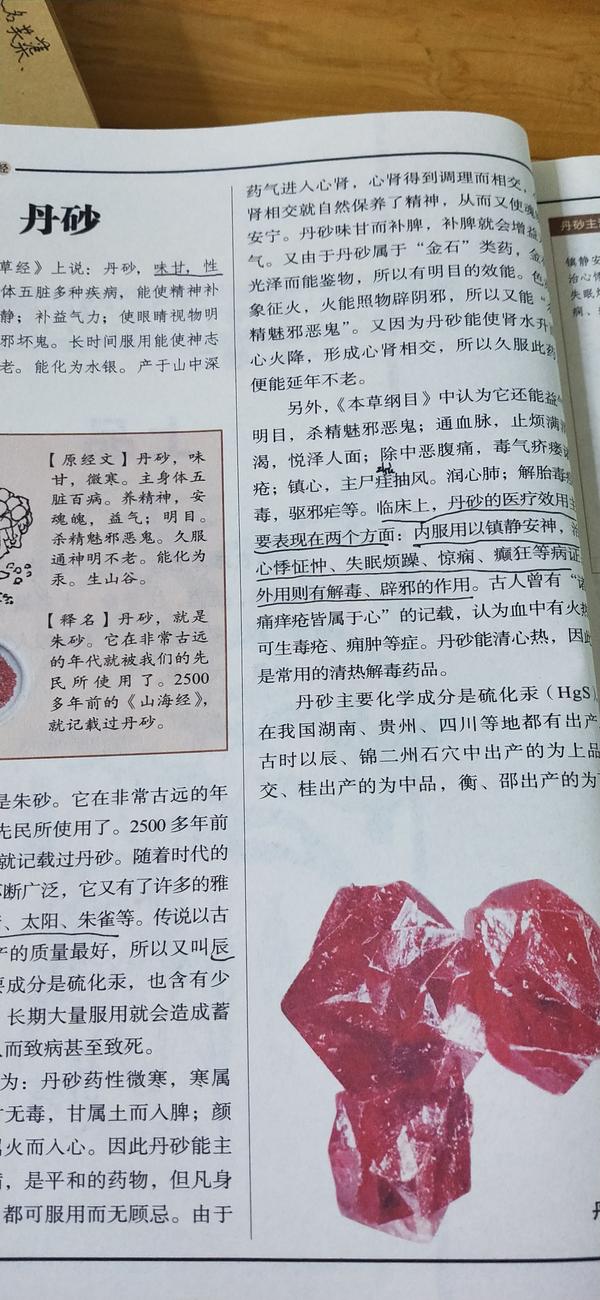 经
丹砂
草经》上说：丹砂，味甘，性
体五脏多种疾病，能使精神补
静；补益气力；使眼睛视物明
邪坏鬼。长时间服用能使神志
老。能化为水银。产于山中深
【原经文】丹砂，味
甘，微寒。主身体五
脏百病。养精神，安
魂魄，益气；明目。
杀精魅邪恶鬼。久服
通神明不老。能化为
汞。生山谷。
【释名】丹砂，就是
朱砂。它在非常古远
的年代就被我们的先
民所使用了。2500
多年前的《山海经》，
就记载过丹砂。
是朱砂。它在非常古远的年
先民所使用了。2500多年前
就记载过丹砂。随着时代的
不断广泛，它又有了许多的雅
、太阳、朱雀等。传说以古
产的质量最好，所以又叫辰
要成分是硫化汞，也含有少
长期大量服用就会造成蓄
而致病甚至致死。
为：丹砂药性微寒，寒属
甘无毒，甘属土而入脾；颜
属火而入心。因此丹砂能主
，是平和的药物，但凡身
都可服用而无顾忌。由于
药气进入心肾，心肾得到调理而相交，
肾相交就自然保养了精神，从而又使魂
安宁。丹砂味甘而补脾，补脾就会增益
气。又由于丹砂属于“金石”类药，金
光泽而能鉴物，所以有明目的效能。色
象征火，火能照物辟阴邪，所以又能“杀
精魅邪恶鬼”。又因为丹砂能使肾水升
心火降，形成心肾相交，所以久服此药
便能延年不老。
另外，《本草纲目》中认为它还能益气
明目，杀精魅邪恶鬼；通血脉，止烦满
渴，悦泽人面；除中恶腹痛，毒气疥瘘诸
疮；镇心，主尸疰抽风。润心肺；解胎毒
毒，驱邪疟等。临床上，丹砂的医疗效用主
要表现在两个方面：内服用以镇静安神，治
心悸怔忡、失眠烦躁、惊痫、癫狂等病证
外用则有解毒、辟邪的作用。古人曾有“诸
痛痒疮皆属于心”的记载，认为血中有火热
可生毒疮、痈肿等症。丹砂能清心热，因此
是常用的清热解毒药品。
丹砂主要化学成分是硫化汞（HgS）
在我国湖南、贵州、四川等地都有出产
古时以辰、锦二州石穴中出产的为上品
交、桂出产的为中品，衡、邵出产的为下
丹砂主
镇静安
治心悸
失眠烦
病、